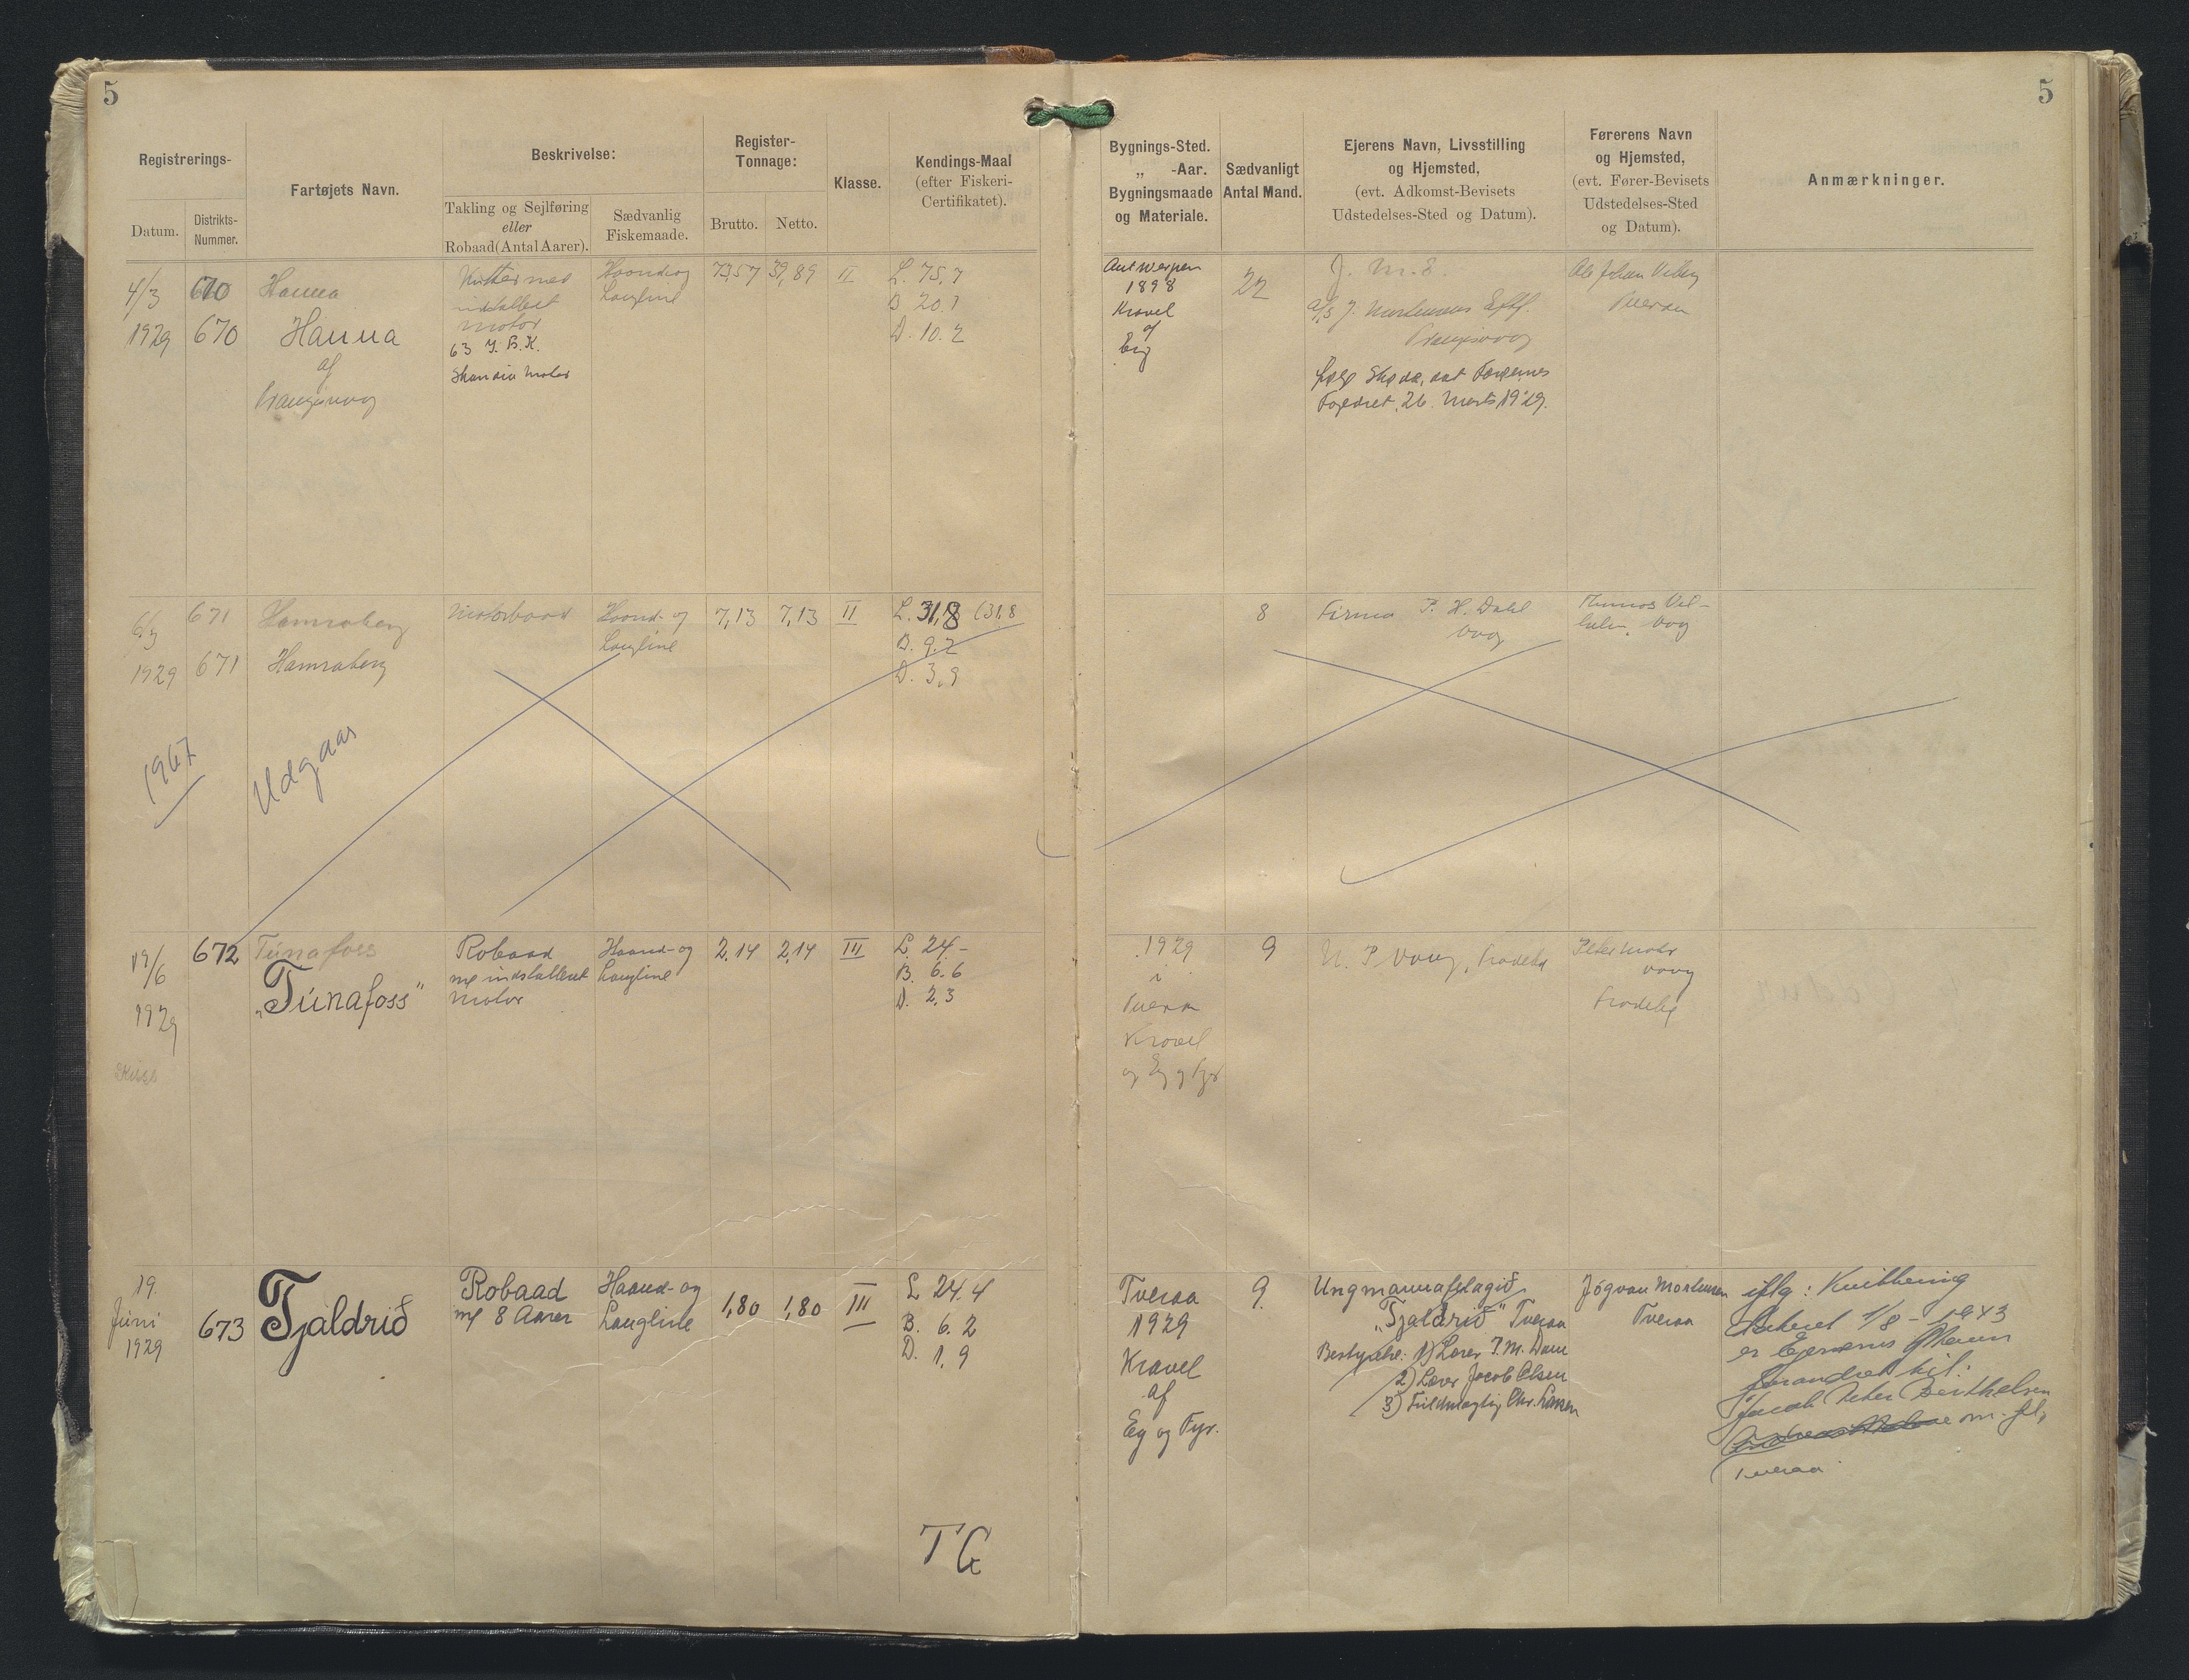 5
Registrerings-
Datum.
Distrikts-
Nummer.
Fartøjets Navn.
Beskrivelse:
Takling og Sejlføring
eller
Robaad (Antal Aarer).
Sædvanlig
Fiskemaade.
Register-
Tonnage:
Brutto.
Netto.
Klasse.
Kendings-Maal
(efter Fiskeri-
Certifikatet).
5
Bygnings-Sted.
„ -Aar.
Bygningsmaade
og Materiale.
Sædvanligt
Antal Mand.
Ejerens Navn, Livsstilling
og Hjemsted,
(evt. Adkomst-Bevisets
Udstedelses-Sted og Datum).
Førerens Navn
og Hjemsted,
(evt. Fører-Bevisets
Udstedelses-Sted
og Datum).
Anmærkninger.
4/3
1929
670
670
Hanna
Hanna
af
Kutter med
installeret
Motor
63 I. B. K.
Skandia Motor
Haand og
Langline
73,57
39,89
II
L. 75,7
B 20.1
D. 10.2
Antwerpen
1898
Kravel
af
Eg
22
J. M. E.
A/S J. Mortensens Eftf.
Færøernes
26. Marts 1929.
6/3
1929
671
671
Hamraberg
Hamraberg
Motorbaad
Haand- og
Langline
7,13
7,13
II
L. 31,8 (31,8
B. 9.2
D. 3,9
8
Firma P. H. Dahl
Vaag
Vaag
1967
Udgaar
19/6
1929
672
Túnafoss
„Túnafoss"
Robaad
m/ indstalleret
Motor
Haand- og
Langline
2,14
2,14
III
L. 24,-
B. 6.6
D. 2,3
1929
i
Tveraa
Kravel
og Eg og Fyr
9
Peter Mohr
Vaag
19.
Júni
1929
673
Tjaldrið
Robaad
m/ 8 Aarer
Haand- og
Langline
1,80
1,80
III
L 24.4
B. 6.2
D. 1,9
Tveraa
1929
Kravel
af
Eg og Fyr.
9.
Ungmannafelagið
„Tjaldrið" Tveraa
Bestyrelse: 1) Lærer J. M. Dam
2) Lærer Jacob Olsen
3) Fuldmægtig Chr. Larsen
Jógvan Mortensen
Tveraa
iflg: Kvittering
Dateret 1/8 - 1943
er Ejerens Navn
forandret til:
Jacob Peter Berthelsen
m. fl.,
Tveraa
T G